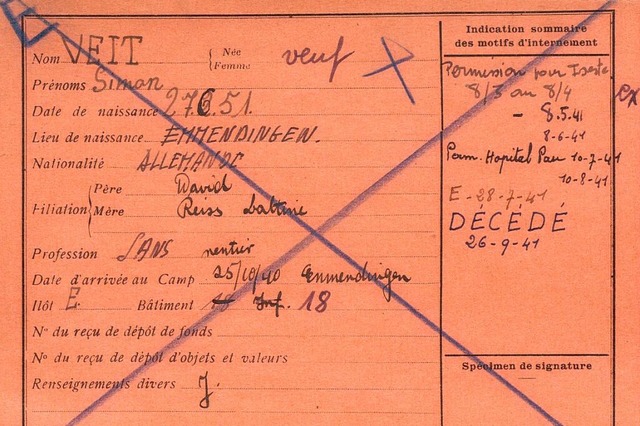 Nom VEIT { Née Femme veuf
Prénoms Simon
Date de naissance 27.6.51.
Lieu de naissance EMMENDINGEN.
Nationalité ALLEMANDE
Filiation { Père David
Mère Reiss
Profession SANS rentier
Date d'arrivée au Camp 25/10/40 Emmendingen
Ilôt E Bâtiment Inf. 18
N° du reçu de dépôt de fonds
N° du reçu de dépôt d'objets et valeurs
Renseignements divers J.
Indication sommaire
des motifs d'internement
Permission pour
8/3 au 8/4
- 8.5.41
8-6-41
Perm. Hopital Pau 10-7-41
10-8-41
E - 28-7-41
DÉCÉDÉ
26-9-41
Spécimen de signature